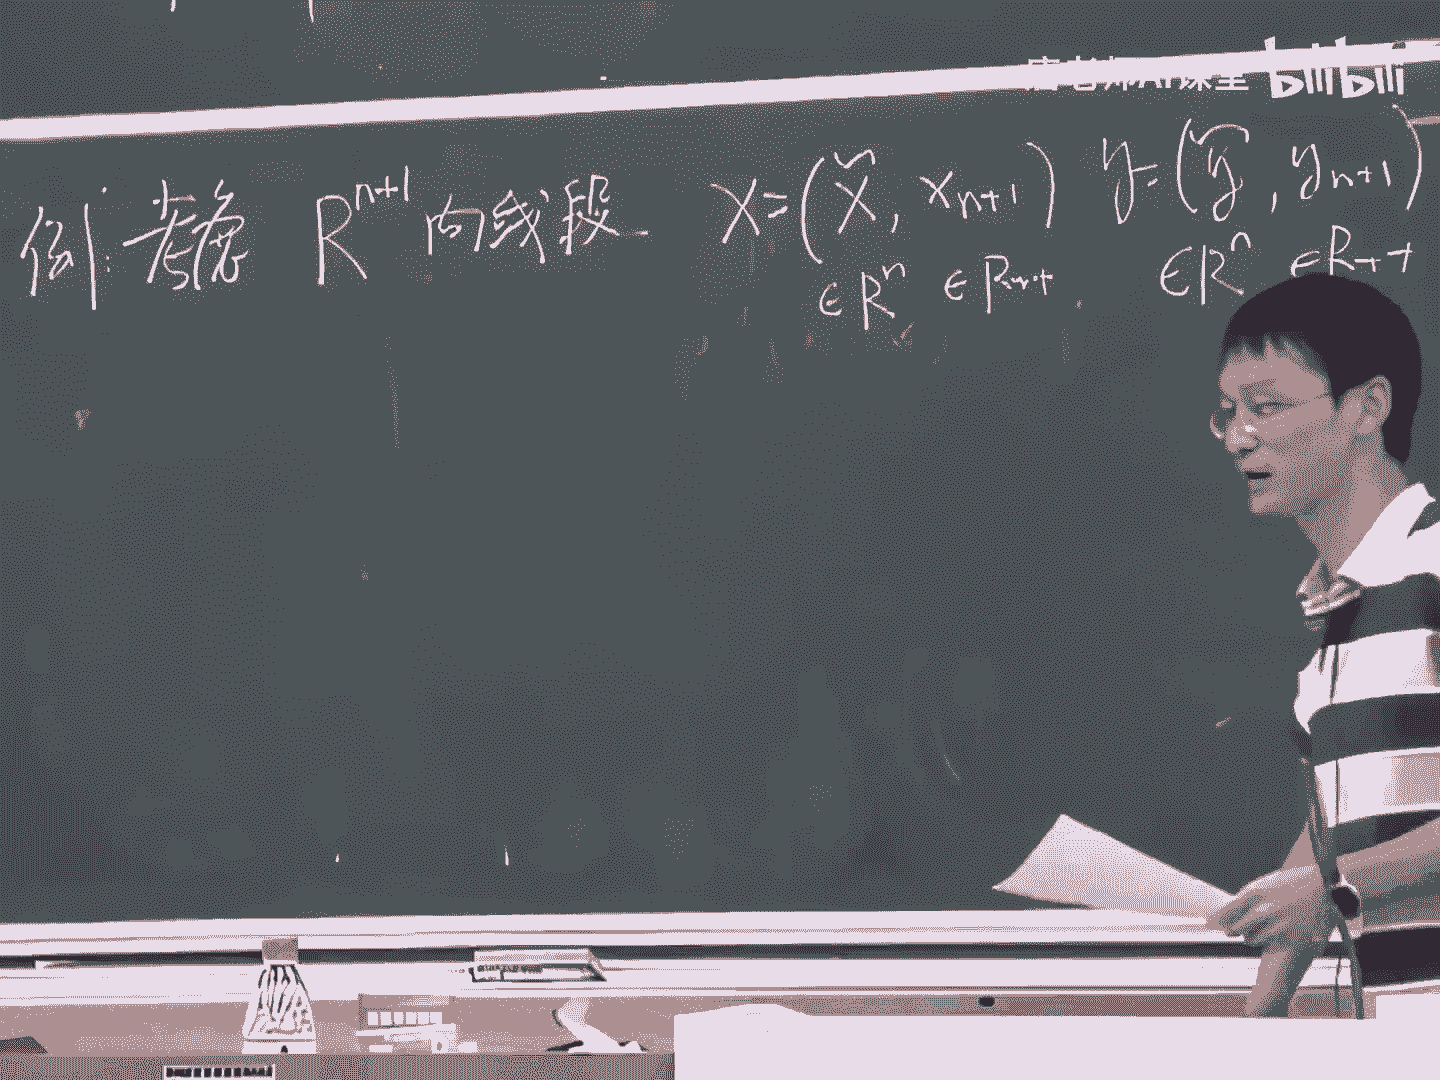 唐老师AI课堂 bilibili
例: 考虑 R^{n+1} 内线段 X=(x̃, x_{n+1}) y=(ỹ, y_{n+1})
∈R^n ∈R_{++} ∈R^n ∈R_{++}